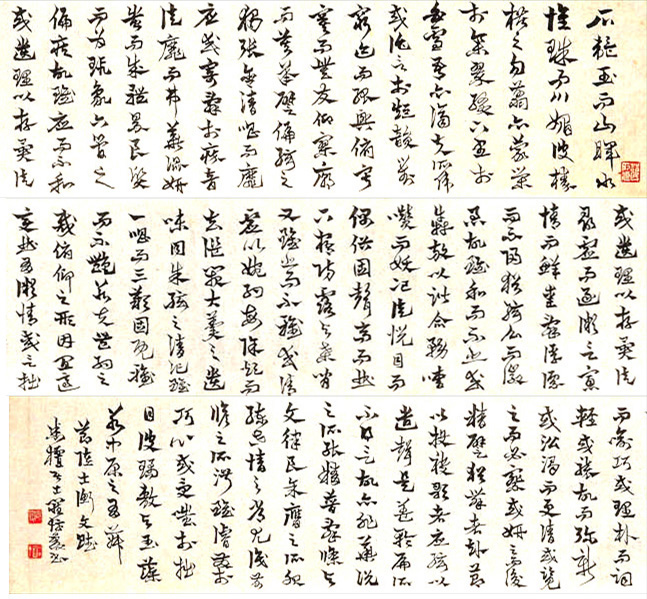 石韞玉而山輝水
懷珠而川媚彼榛
楛之勿翦亦蒙榮
於集翠綴下里於
白雪吾亦濟夫所偉
或託言於短韻對
窮迹而孤興俯寂
寞而無友仰寥廓
而莫承譬偏絃之
獨張含清唱而靡
應或寄辭於瘁音
徒靡而弗華混妍
蚩而成體累良質
而為瑕象下管之
偏疾故雖應而不和
或遺理以存異徒
或遺理以存異徒
尋虛而逐微言寡
情而鮮愛辭浮漂
而不歸猶絃么而徽
急故雖和而不悲或
奔放以諧合務嘈
囋而妖冶徒悅目而
偶俗固聲高而曲
下寤防露與桑間
又雖悲而不雅或清
虛以婉約每除煩而
去濫闕大羹之遺
味同朱絃之清氾雖
一唱而三歎固既雅
而不艷若夫豐約之
裁俯仰之形因宜適
變曲有微情或言拙
而喻巧或理朴而詞
輕或襲故而彌新
或沿濁而更清或覽
之而必察或妍之而後
精譬猶舞者赴節
以投袂歌者應絃以
遣聲是蓋輪扁所
不得言故亦非華說
之所能精普辭條與
文律良余膺之所服
練世情之常尤識前
脩之所淑雖濬發於
巧心或受嗤於拙
目彼瓊敷與玉藻
若中原之有菽
節陸士衡文賦